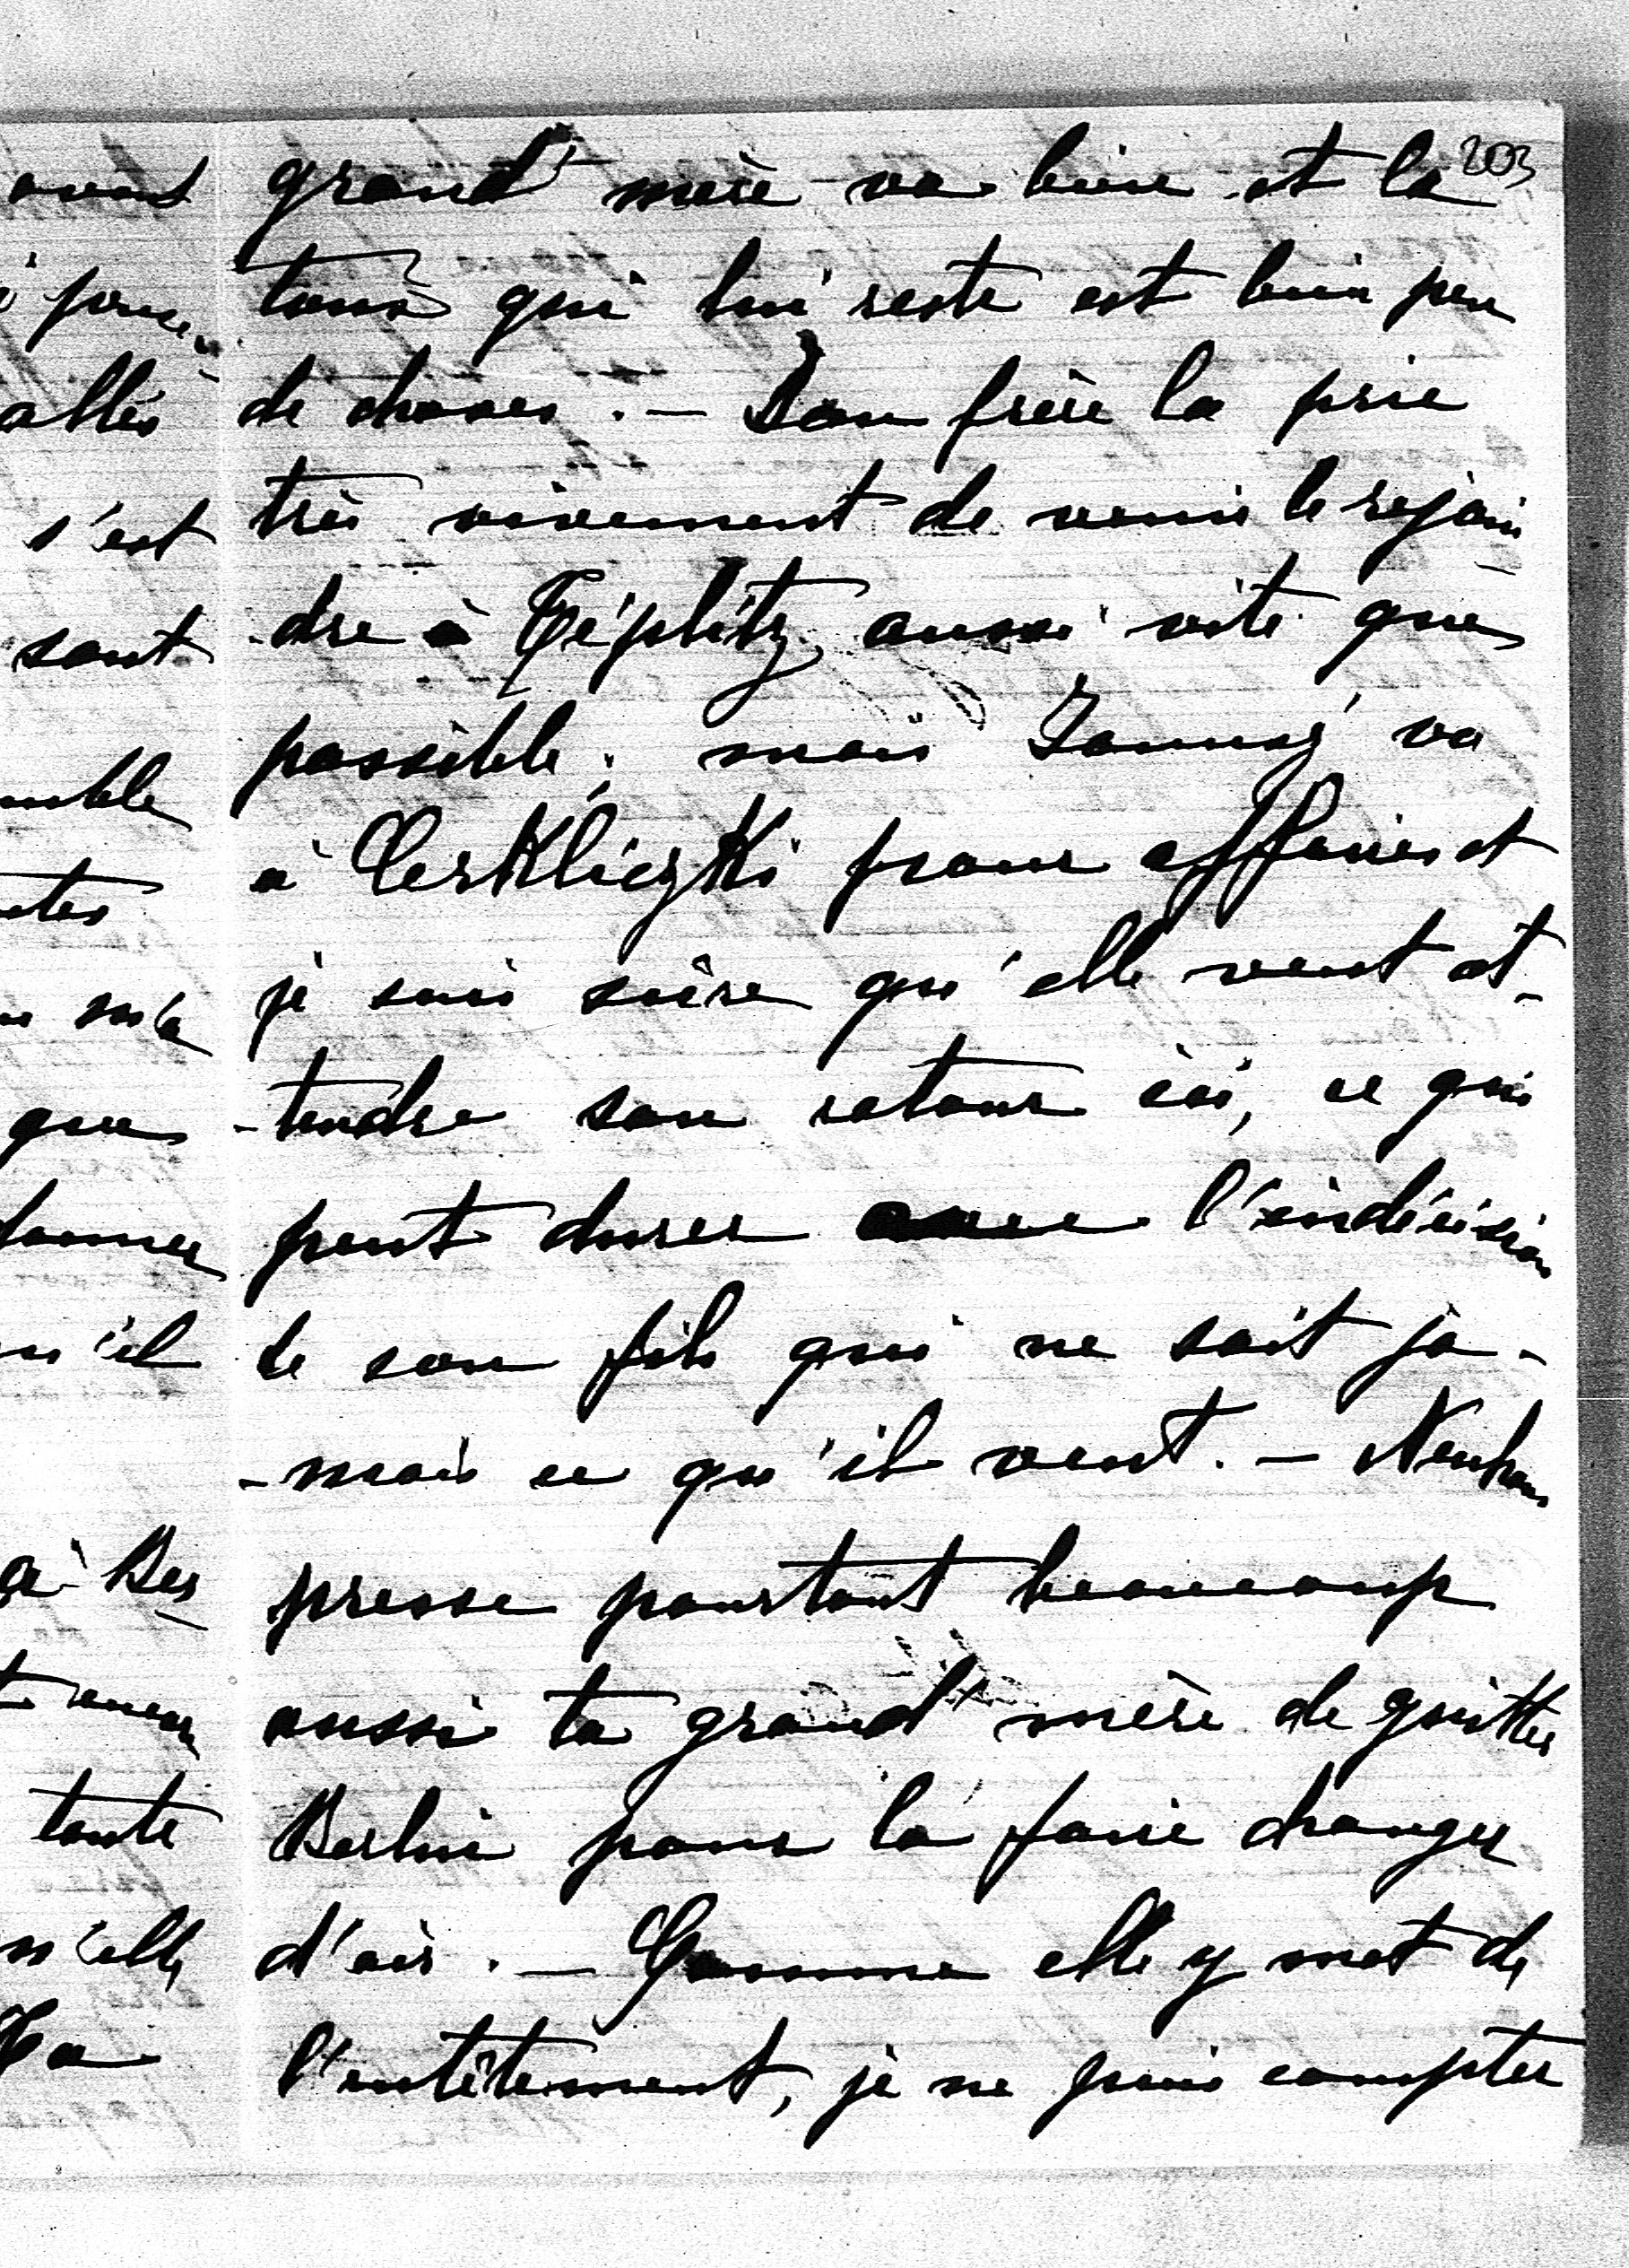 203
grand' mère va bien et la
toux qui lui reste est bien peu
de choses. — Son frère la prie
très vivement de venir le rejoin
dre à Téplitz aussi vite que
possible; mais va
à pour affaires et
je suis sûre qu'elle veut at-
-tendre son retour ici, ce qui
peut durer avec l'indécision
de son fils qui ne sait ja-
-mais ce qu'il veut. —
presse pourtant beaucoup
aussi ta grand' mère de quitter
Berlin pour la faire changer
d'air. — Comme elle y met de
l'entêtement, je ne puis compter
allés
s'est
sont
m'a
que
à
tante
Ta